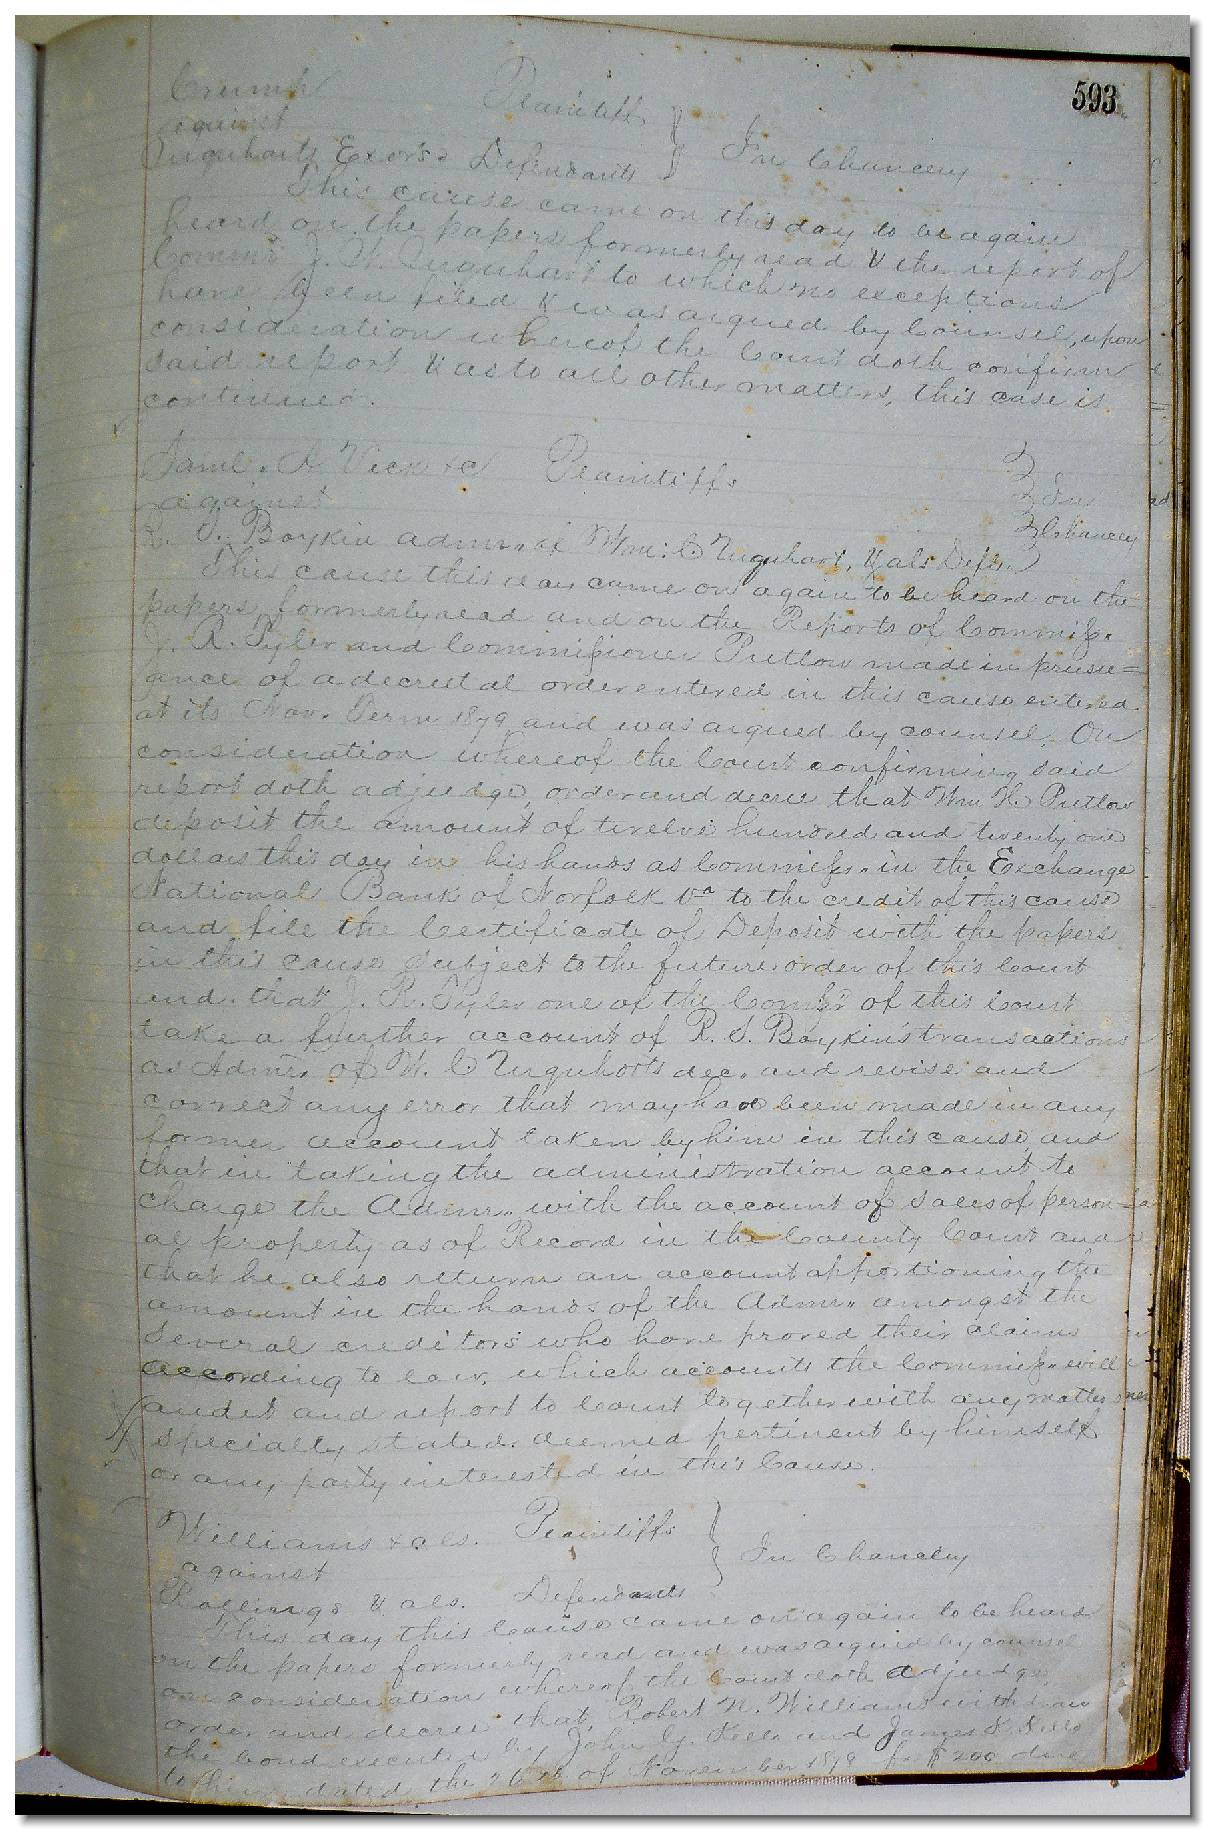 593
Crump Plaintiff
against In Chancery
Urquhart's Exor's Defendants
This cause came on this day to be again
heard on the papers formerly read & the report of
Commr J. W. Urquhart to which no exceptions
have been filed & was argued by Counsel, upon
consideration whereof the Court doth confirm
said report & as to all other matters, this case is
continued.
Saml. A. Vick &c Plaintiffs
against In
R. S. Boykin admr. of Wm: C Urquhart, & als Defts Chancery
This cause this day came on again to be heard on the
papers formerly read and on the Reports of Commiss.
J. R. Tyler and Commissioner Pretlow made in prusu=
ance of a decretal order entered in this cause entered
at its Nov. Term 1879 and was argued by counsel. On
consideration whereof the Court confirming said
report doth adjudge, order and decree that Wm H. Pretlow
deposit the amount of twelve hundred and twenty one
dollars this day in his hands as Commissr. in the Exchange
National Bank of Norfolk Va to the credit of this cause
and file the Certificate of Deposit with the papers
in this cause subject to the future order of this Court
and that J. R. Tyler one of the Comssrs of this Court
take a further account of R. S. Boykin's transactions
as Admr. of W. C Urquharts dec. and revise and
correct any error that may have been made in any
former account taken by him in this cause and
that in taking the administration account to
charge the Admr. with the account of sales of person=
al property as of Record in the County Court and
that he also return an account apportioning the
amount in the hands of the Admr. amongst the
several creditors who have proved their claims
according to law, which accounts the Commiss. will
audit and report to Court together with any matter
specially stated deemed pertinent by himself
or any party interested in this Cause.
Williams & als. Plaintiffs
against In Chancery
Rollings & als. Defendants
This day this Cause came on again to be heard
on the papers formerly read and was argued by counsel
on consideration whereof the Court doth adjudge
order and decree that Robert N. Williams withdraw
the bond executed by John Y. and James
to him dated the 26th of November 1879 for $200 due